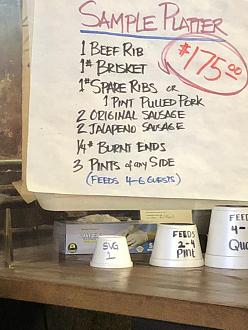 SAMPLE PLATTER
$175.00
1 BEEF RIB
1# BRISKET
1# SPARE RIBS OR
1 PINT PULLED PORK
2 ORIGINAL SAUSAGE
2 JALAPENO SAUSAGE
1/4# BURNT ENDS
3 PINTS of any SIDE
(FEEDS 4-6 GUESTS)
SVG
1
FEEDS
2-4
PINT
FEED
4-
Qua